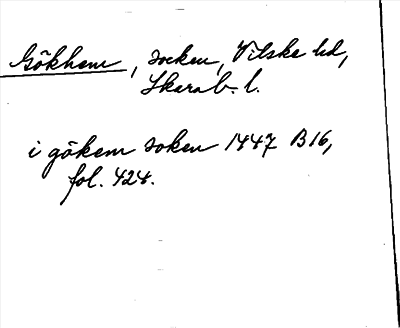 Gökhem, socken, Vilske hd,
Skarab. l.
i gökem soken 1447 B16,
fol. 424.